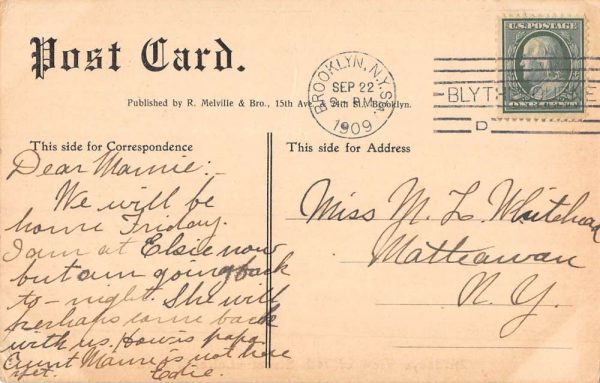 Post Card.
Published by R. Melville & Bro., 15th Ave. & 24th St., Brooklyn.
BROOKLYN, N.Y. STA.
SEP 22
9 PM
1909
U.S. POSTAGE
ONE CENT
BLYTH
D
This side for Correspondence
This side for Address
Dear Mamie:-
We will be
home Friday.
I am at Elsie now
but am going back
to-night. She will
perhaps come back
with us. How is papa
Aunt Mamie is not here
yet. Eadie.
Miss M. L. Whitehead
Matteawan
N. Y.